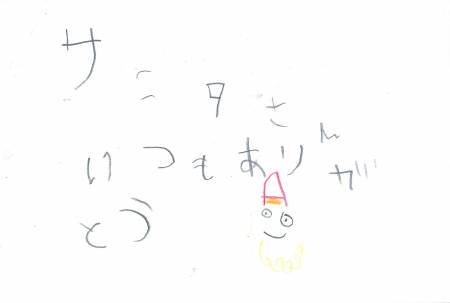 サンタさん
いつもありが
とう